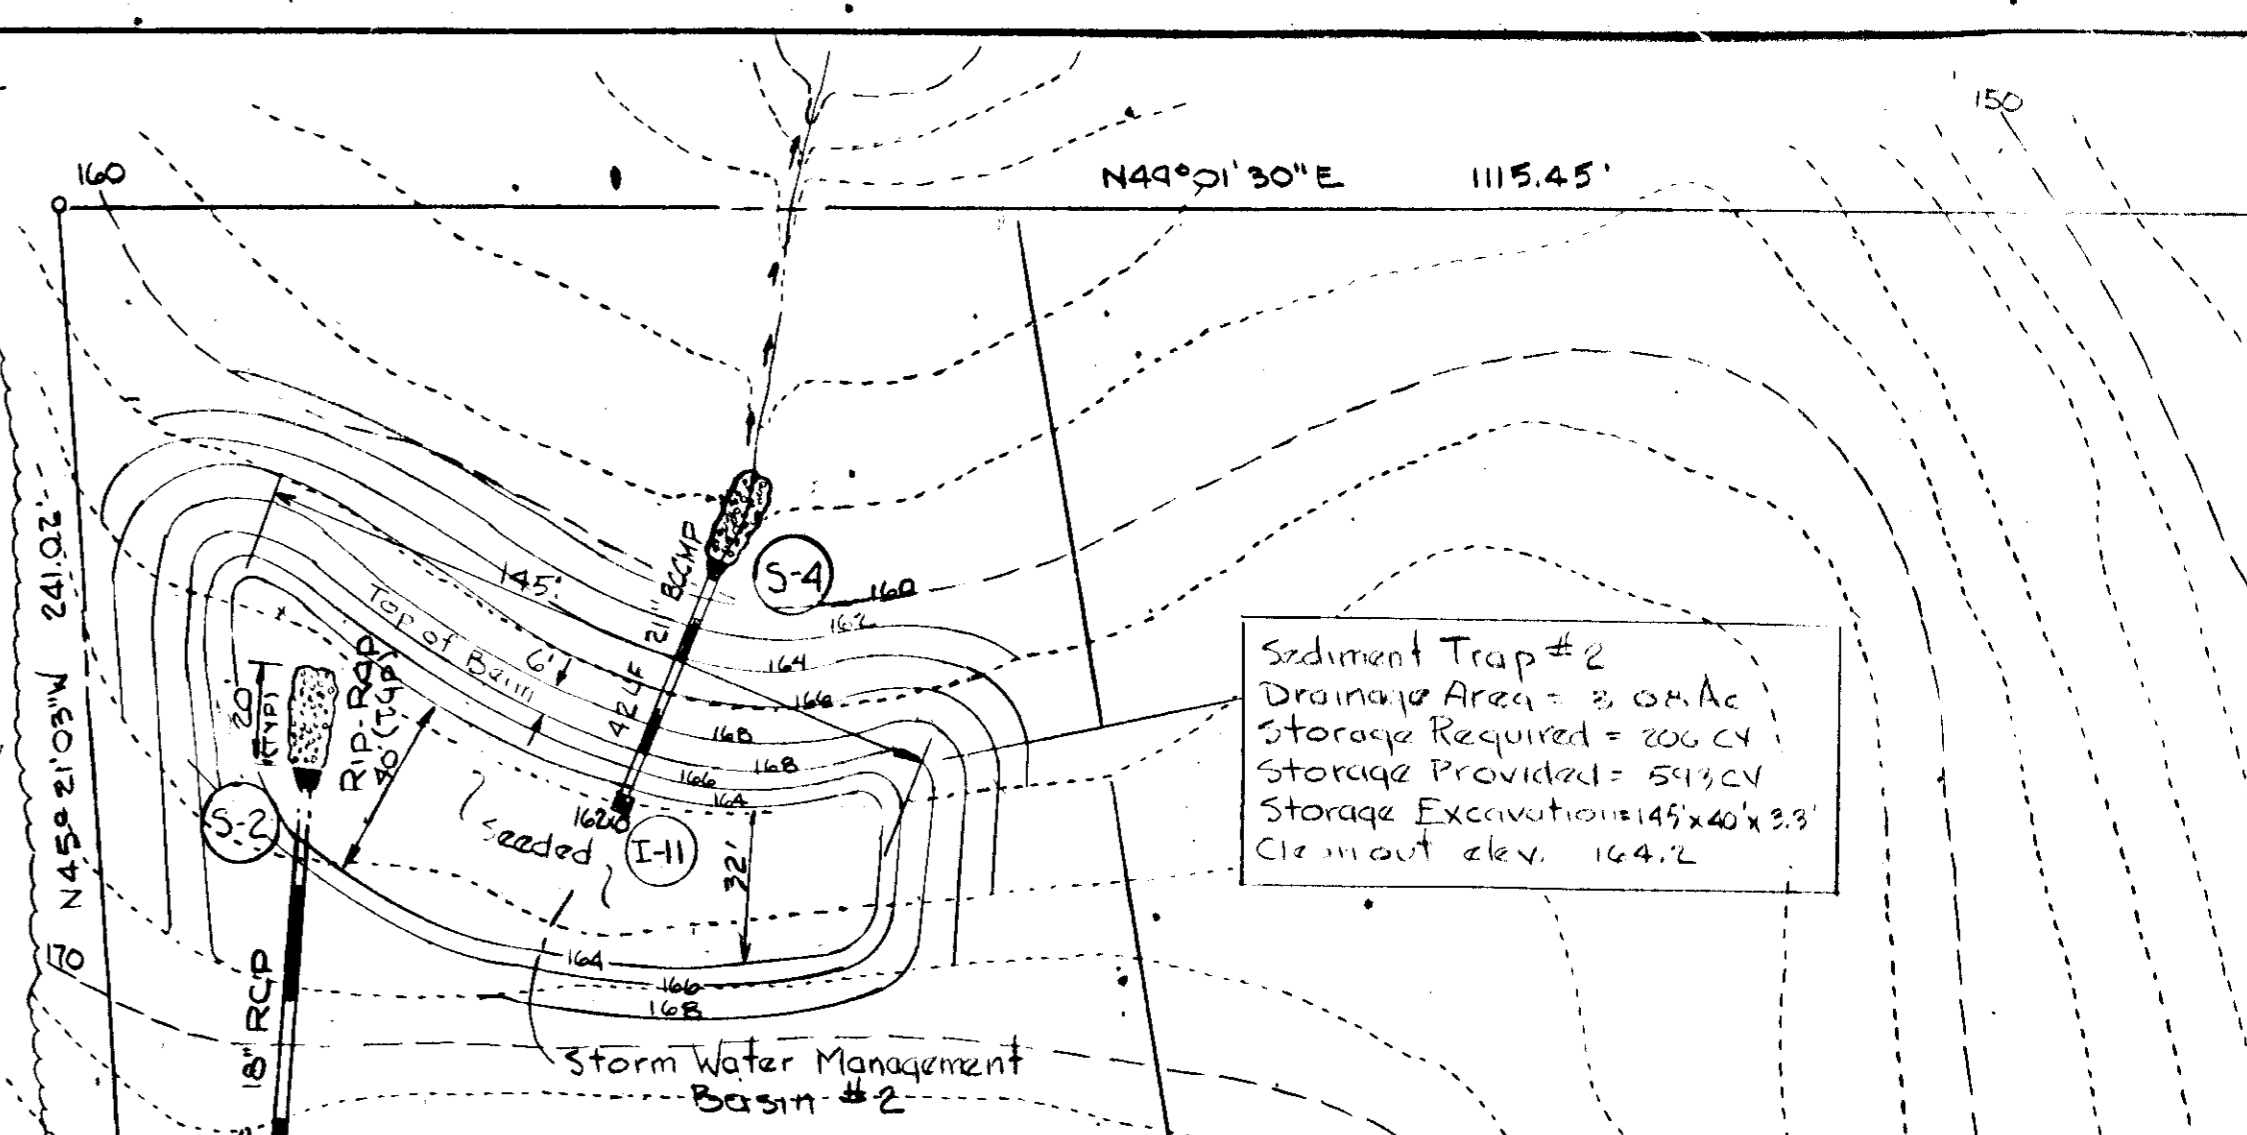 150
160
N49°01'30"E 1115.45'
N45°21'03"W 241.02'
145'
Top of Berm
6'
21" BCCMP
42 LF
S-4
160
162
164
166
168
168
166
164
20'
(TYP)
RIP-RAP
40' (TYP)
S-2
162.0
I-11
Seeded
32'
164
166
168
170
18" RCP
Storm Water Management
Basin #2
Sediment Trap #2
Drainage Area = 3.08 Ac
Storage Required = 206 CY
Storage Provided = 593 CY
Storage Excavation = 145' x 40' x 3.3'
Cleanout elev. 164.2